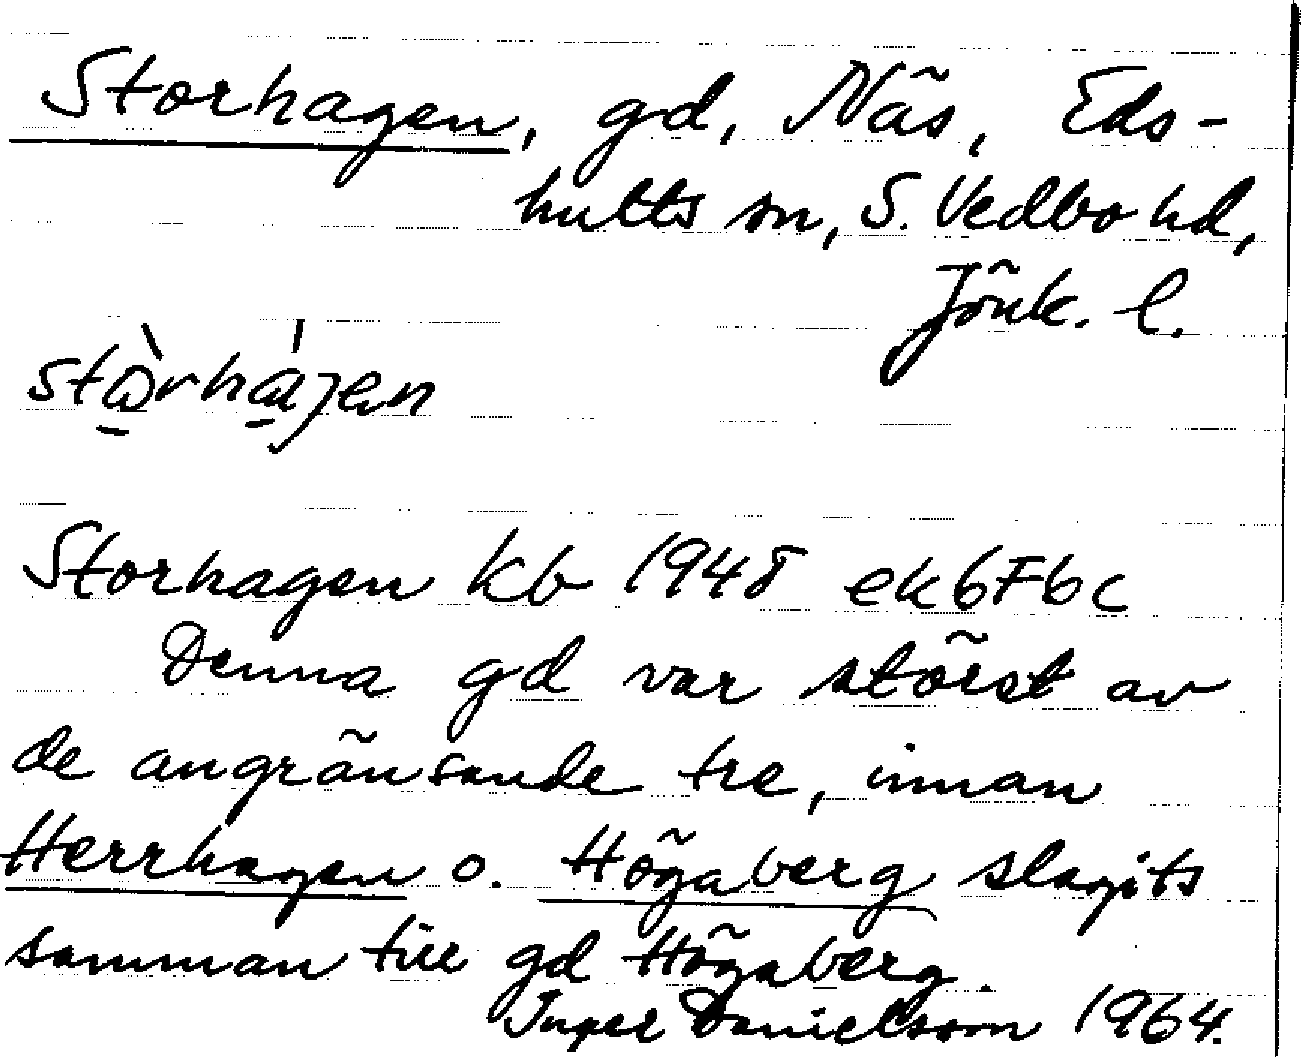 Storhagen, gd, Näs, Eds-
hults sn, S. Vedbo hd,
Jönk. l.
stòrhájen
Storhagen kb 1948 ek6F6c
Denna gd var störst av
de angränsande tre, innan
Herrhagen o. Högaberg slagits
samman till gd Högaberg.
Inger Danielsson 1964.